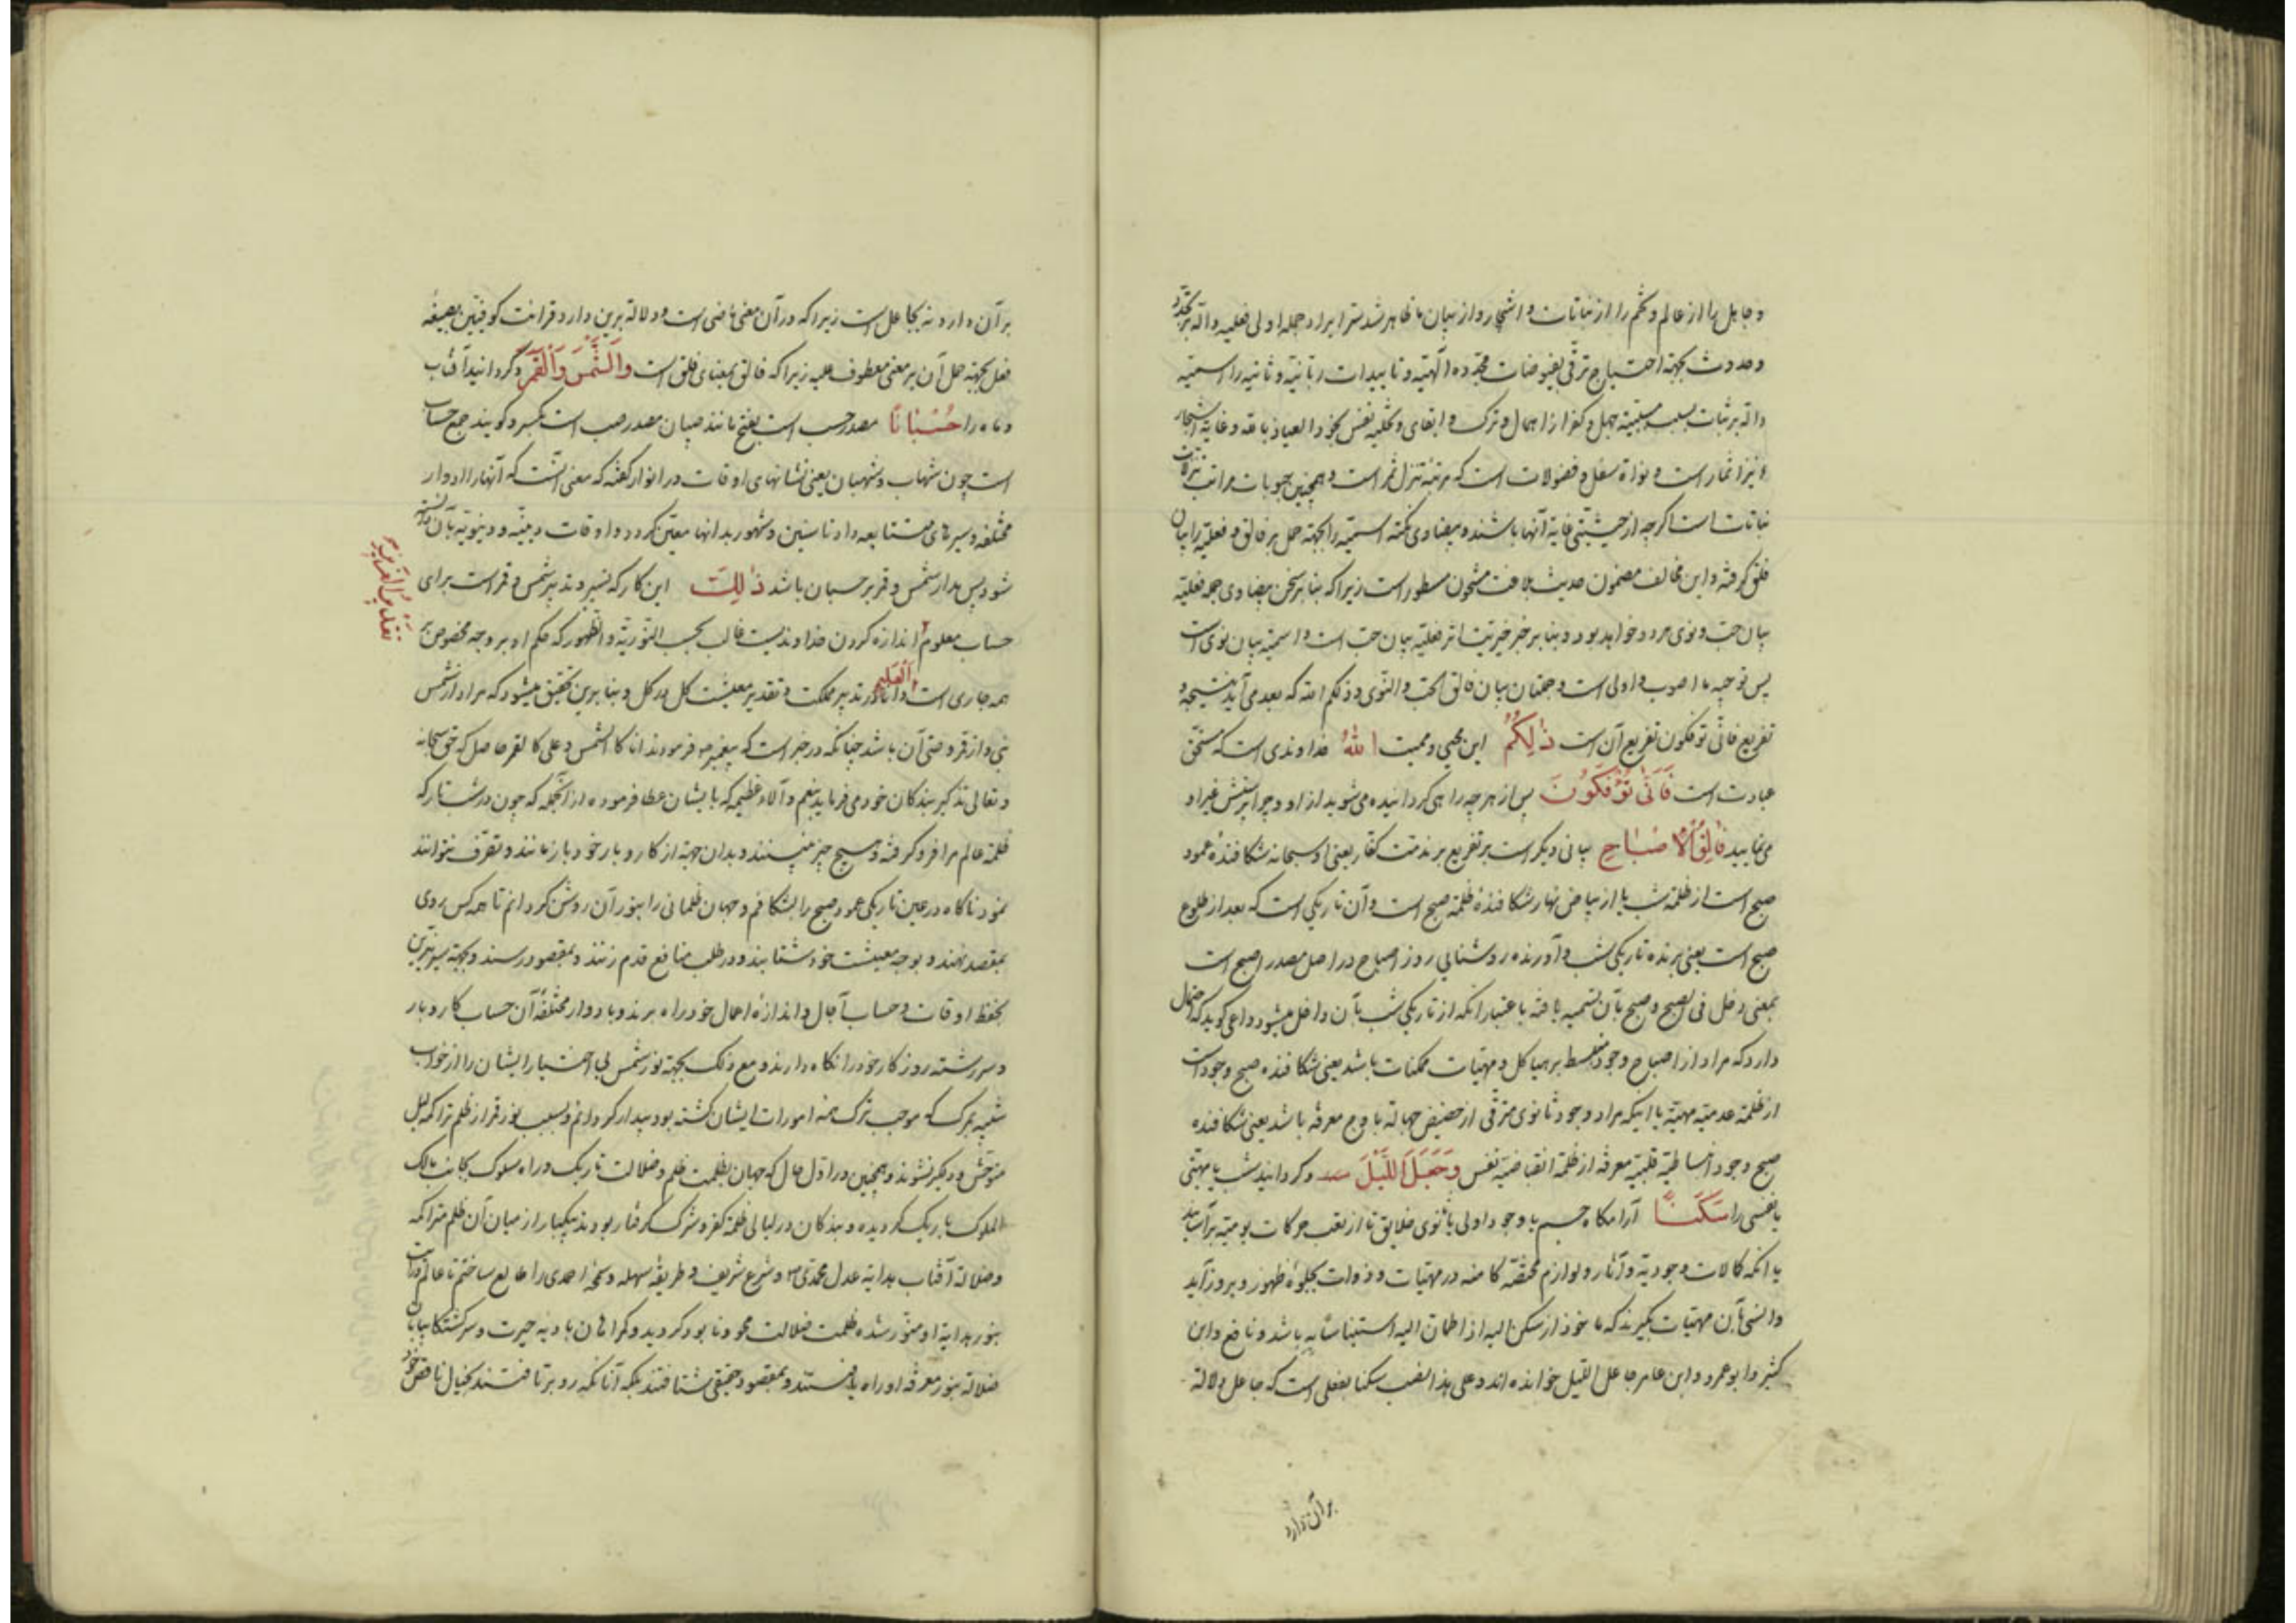 و جاهل را از عالم و تخم را از نباتات و اشجار و از بیان ما ظاهر شد سر ایراد جمله اولی فعلیه دالة بر تجدد
و حدوث بجهة احتیاج ترقی بفیوضات مجدده الهیه و تاییدات ربانیه و ثانیه را اسمیه
دالة بر ثبات بسبب جهل و کفر از اهمال و ترک و ابقای و تخلیه نفس بخود العیاذ بالله و غایة اشجار
و نیز اثمار است و نواة سفل و فضولات است که مرتبه تنزل ثمر است و همچنین حبوبات مراتب تنزلات
نباتات است اگرچه از حیثیتی غایة آنها باشند و بیضاوی نکته اسمیه را بجهة حمل بر فالق و فعلیه را بیان
فلق گرفته و این مخالف مضمون حدیث بلاغت مشحون مسطور است زیرا که بنابر سخن بیضاوی جمله فعلیه
بیان حب و نوی هر دو خواهد بود و بنابر خبر خیریت اثر فعلیه بیان حب است و اسمیه بیان نوی است
پس توجیه ما اصوب و اولی است و جملتان بیان فالق الحب والنوی و ذلکم الله که بعد می آید نتیجه و
تفریع فانی توفکون تفریع آن است ذٰلِكُمُ این محیی و ممیت اللهُ خداوندی است که مستحق
عبادت است فَاَنّٰى تُؤْفَكُونَ پس از هر چه راهی گردانیده می شوید از او و چرا پرستش غیر او
می نمایید فٰالِقُ الْاِصْبٰاحِ بیانی دیگر است بر تفریع بر مذمت کفار یعنی او سبحانه شکافنده عمود
صبح است از ظلمة شب یا از بیاض نهار شکافنده ظلمة صبح است و آن تاریکی است که بعد از طلوع
صبح است یعنی برنده تاریکی شب و آورنده روشنایی روز اصباح در اصل مصدر اصبح است
بمعنی دخل فی الصبح و صبح بآن تسمیه یافته باعتبار انکه از تاریکی شب بآن داخل میشود و داعی گوید که احتمال
دارد که مراد از اصباح وجود منبسط بر هیاکل و مهیات ممکنات باشد یعنی شکافنده صبح وجود است
از ظلمة عدمیه مهیة یا اینکه مراد وجود ثانوی مترقی از حضیض جهالة باوج معرفة باشد یعنی شکافنده
صبح وجود انبساطیة قلبیة معرفة از ظلمة انقباضیة نفس وَجَعَلَ اللَّيْلَ و گردانید شب یا مهیتی
یا نفسی را سَكَنًا آرامگاه جسم یا وجود اولی یا ثانوی خلایق تا از تعب حرکات یومیه برآسایند
یا انکه کمالات وجودیة و آثار و لوازم مختصه کامنه در مهیات و ذوات بجلوۀ ظهور و بروز آید
و انسی بآن مهیات بگیرند که ماخوذ از سکن الیه اذا اطمان الیه استیناسا به باشد و نافع و ابن
کثیر و ابو عمرو و ابن عامر جاعل اللیل خوانده اند و علی هذا نصب سکنا بفعلی است که جاعل دلالة
برآن دارد
برآن دارد نه بجاعل است زیرا که در آن معنی ماضی است و دلالة برین دارد قرائت کوفیین بصیغه
فعل بجهة حمل آن بر معنی معطوف علیه زیرا که فالق بمعنای فلق است وَالشَّمْسَ وَالْقَمَرَ و گردانید آفتاب
و ماه را حُسْبٰانًا مصدر حسب است بفتح مانند حسبان مصدر حسب است بکسر و گویند جمع حساب
است چون شهاب و شهبان یعنی نشانهای اوقات در انوار گفته که معنی انست که آنها را ادوار
مختلفه و سیرهای متتابعه داد تا سنین و شهور بدانها معین گردد و اوقات دینیه و دنیویه بآن دانسته
شود پس مدار شمس و قمر بر حسبان باشد ذٰلِكَ این کار که تسییر و تدبیر شمس و قمر است برای
حساب معلوم اندازه کردن خداوندیست غالب بحسب القدرة و الظهور که حکم او بر وجه مخصوص بر
تَقْدِيرُ الْعَزِيزِ
همه جاری است الْعَلِيمِ و دانا در تدبیر مملکت و تقدیر معیشت کل در کل و بنابرین تحقیق میشود که مراد از شمس
نبی و از قمر وصی آن باشد چنانکه در خبر است که پیغمبر ص فرمودند انا کالشمس و علی کالقمر حاصل که حق سبحانه
و تعالی تذکیر بندگان خود می فرماید بنعم و آلاء عظیمه که بایشان عطا فرموده از انجمله که چون در شب تار که
ظلمة عالم را فرو گرفته و هیچ چیز نبینند و بدان جهة از کار و بار خود باز مانند و تصرف نتوانند
نمود ناگاه در عین تاریکی عمود صبح را بشکافم و جهان ظلمانی را بنور آن روشن گردانم تا همه کس روی
بمقصد نهند و بوجه معیشت خود شتابند و در طلب منافع قدم زنند و بمقصود رسند و بجهة سیر نیرین
بحفظ اوقات و حساب آجال و اندازۀ اعمال خود راه برند و بادوار مختلفۀ آن حساب کار و بار
و سررشته روزگار خود را نگاه دارند و مع ذلک بجهة نور شمس بی اختیار ایشان را از خواب
شبیه بمرگ که موجب ترک همه امورات ایشان گشته بود بیدار گردانم و بسبب نور قمر از ظلم تراکمه لیل
متوحش و دیگر نشوند و همچنین در اول حال که جهان بظلمت ظلم و ضلالت تاریک و راه سلوک بجانب مالک
الملوک باریک گردیده و بندگان در لیالی ظلمة کفر و شرک گرفتار بودند بیکبار از میان آن ظلم متراکمه
و ضلالة آفتاب بدایة عدل محمدی ص و شرع شریف و طریقه سهله و سمحۀ احمدی را طالع ساختم تا عالم و آدم
بنور هدایة او منور شده ظلمت ضلالت محو و نابود گردید و گمراهان بادیه حیرت و سرگشتگان بیابان
ضلالة بنور معرفة او راه یافتند و بمقصود حقیقی شتافتند بلکه آنانکه رو برتافتند بخیال ناقص خود